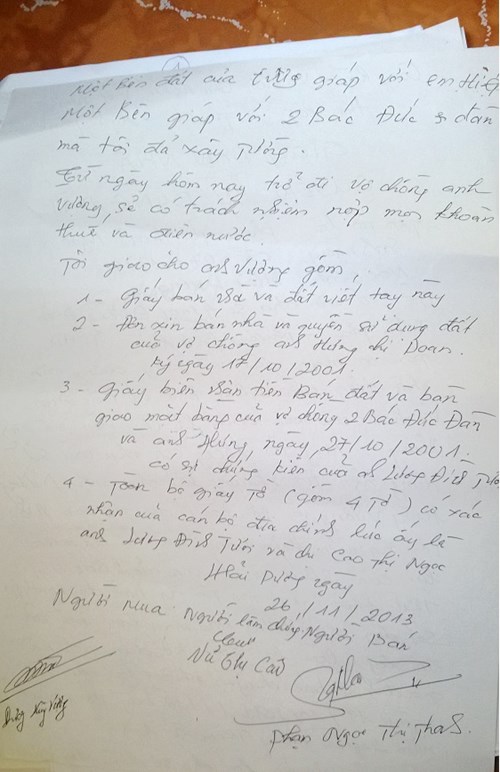 Một bên đất của giáp với em Hiệp
Một Bên giáp với 2 Bác Đức Đan
mà tôi đã xây tường.
Từ ngày hôm nay trở đi vợ chồng anh
Vương, sẽ có trách nhiệm nộp mọi khoản
thuế và điện nước.
Tôi giao cho anh Vương gồm,
1 - Giấy bán nhà và đất viết tay này
2 - Đơn xin bán nhà và quyền sử dụng đất
của vợ chồng anh Hưng chị Doan.
Ký ngày 17/10/2001.
3 - Giấy biên nhận tiền Bán đất và bàn
giao mặt bằng của vợ chồng 2 Bác Đức Đan
và anh Hưng, ngày, 27/10/2001
có sự chứng kiến của a Lương Đình
4 - Toàn bộ giấy tờ (gồm 4 tờ) có xác
nhận của cán bộ địa chính lúc ấy là
anh Lương Đình Tưới và chị Cao Thị Ngọc
Hải Dương ngày
26/11/2013
Người mua Người làm chứng Người Bán
Thị
Phạn Ngọc Thị